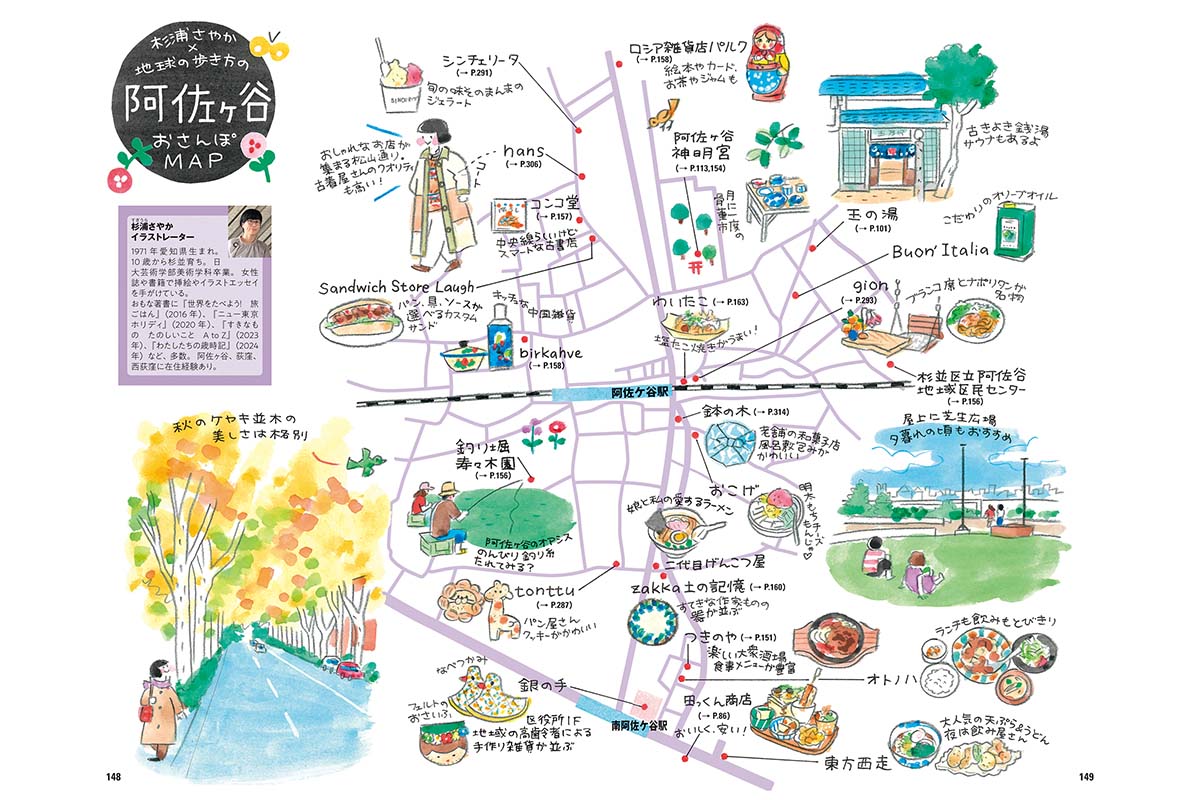 杉浦さやか
×
地球の歩き方の
阿佐ヶ谷
おさんぽ
MAP
すぎうら
杉浦さやか
イラストレーター
1971年愛知県生まれ。
10歳から杉並育ち。日
大芸術学部美術学科卒業。女性
誌や書籍で挿絵やイラストエッセイ
を手がけている。
おもな著書に『世界をたべよう! 旅
ごはん』（2016年）、『ニュー東京
ホリデイ』（2020年）、『すきなも
の たのしいこと AtoZ』（2023
年）、『わたしたちの歳時記』（2024
年）など、多数。阿佐ヶ谷、荻窪、
西荻窪に在住経験あり。
シンチェリータ
(→ P.291)
旬の味そのまんまの
ジェラート
ロシア雑貨店パルク
(→ P.158)
絵本やカード、
お茶やジャムも
おしゃれなお店が
集まる松山通り。
古着屋さんのクオリティ
も高い!
コート
hans
(→ P.306)
コンコ堂
(→ P.157)
中央線らしいけど
スマートな古書店
阿佐ヶ谷
神明宮
(→ P.113,154)
月に一度の
骨董市
古きよき銭湯
サウナもあるよ
玉の湯
(→ P.101)
こだわりのオリーブオイル
Buon'Italia
Sandwich Store Laugh
パン、具、ソースが
選べるカスタム
サンド
中国雑貨
birkahve
(→ P.158)
わいたこ
(→ P.163)
塩たこ焼きがうまい!
gion
(→ P.293)
ブランコ席とナポリタンが
名物
杉並区立阿佐谷
地域区民センター
(→ P.156)
阿佐ケ谷駅
屋上に芝生広場
夕暮れの頃もおすすめ
秋のケヤキ並木の
美しさは格別
釣り堀
寿々木園
(→ P.156)
阿佐ヶ谷のオアシス
のんびり釣り糸
たれてみる?
鉢の木
(→ P.314)
老舗の和菓子店
風呂敷包みが
かわいい
おこげ
明太もちチーズ
もんじゃ♡
娘と私の愛するラーメン
二代目げんこつ屋
tonttu
(→ P.287)
パン屋さん
クッキーがかわいい
zakka土の記憶
(→ P.160)
すてきな作家ものの
器が並ぶ
つきのや
(→ P.151)
楽しい大衆酒場
食事メニューが豊富
ランチも飲みもとびきり
オトノハ
なべつかみ
フェルトの
おさいふ
銀の手
区役所1F
地域の高齢者による
手作り雑貨が並ぶ
南阿佐ケ谷駅
田っくん商店
(→ P.86)
おいしく、安い!
大人気の天ぷら&うどん
夜は飲み屋さん
東方西走
148
149